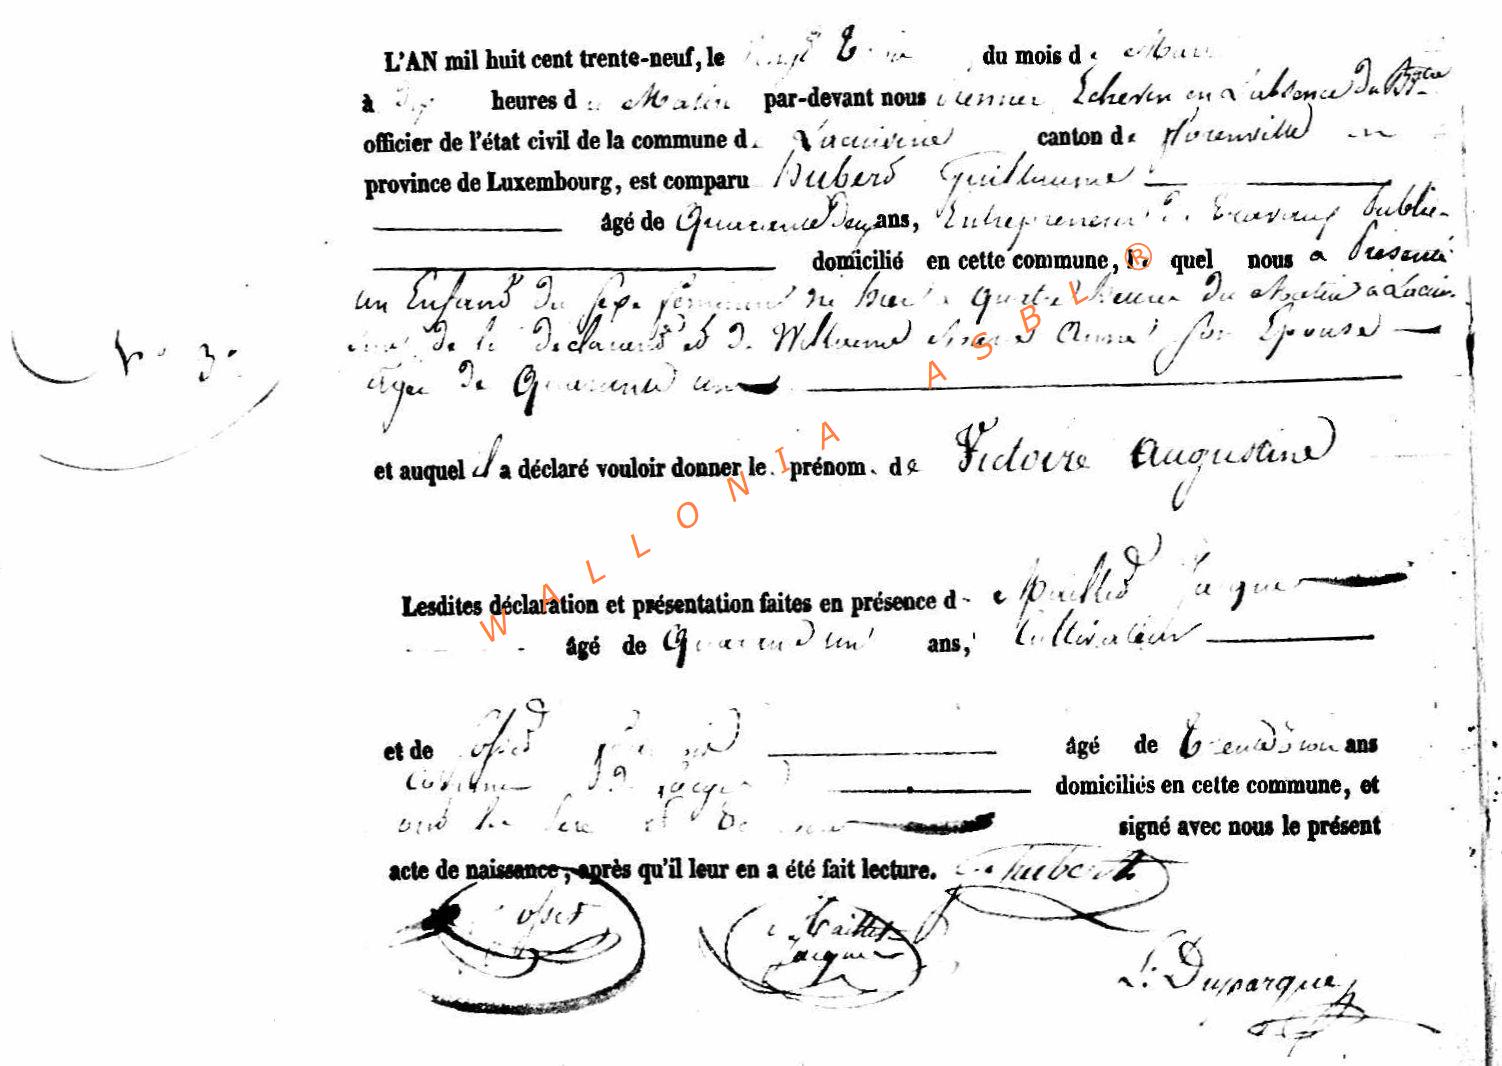 L'AN mil huit cent trente-neuf, le Vingt Trois du mois de Mars
à Dix heures du Matin par-devant nous premier Echevin en l'absence du Bgtre
officier de l'état civil de la commune de Lacuisine canton de florenville en
province de Luxembourg, est comparu Hubert Guillaume
âgé de Quarante Deux ans, Entrepreneur de Travaux Public
domicilié en cette commune, le quel nous a Présenté
un Enfand du sexe féminin né hier a quatre heures du Matin a Lacui-
sine de lui déclarant et de Willaume Marie Anne son Epouse
N° 3.
agée de Quarante un
et auquel il a déclaré vouloir donner le prénom de Victoire Augustine
Lesdites déclaration et présentation faites en présence de Maillet Jacque
âgé de Quarante un ans, Cultivateur
et de âgé de Trente trois ans
domiciliés en cette commune, et
ont le Pere et signé avec nous le présent
acte de naissance, après qu'il leur en a été fait lecture. Hubert
Maillet
Jacque
L. Duparque
WALLONIA ASBL ®